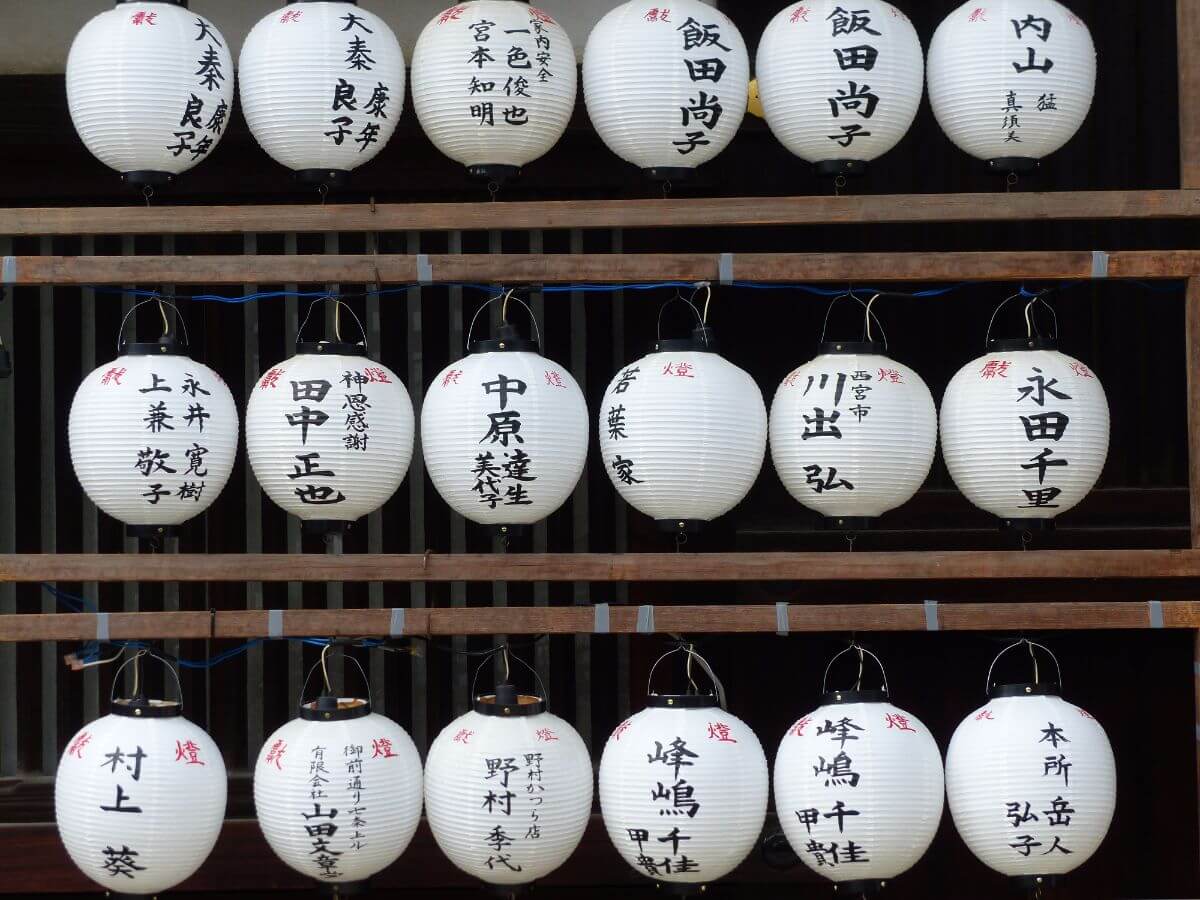 獻
大秦 康年
良子
大秦 康年
良子
獻
家内安全
一色俊也
宮本知明
獻
飯田尚子
獻
飯田尚子
獻
内山 猛
真須美
獻
永井寛樹
上兼敬子
獻 燈
神恩感謝
田中正也
獻 燈
中原達生
美代子
燈
若葉家
獻 燈
西宮市
川出弘
獻 燈
永田千里
獻 燈
村上葵
獻 燈
御前通り七条上ル
有限会社
山田文章堂
獻 燈
野村かつら店
野村季代
獻 燈
峰嶋千佳
甲貴
獻 燈
峰嶋千佳
甲貴
獻
本所岳人
弘子